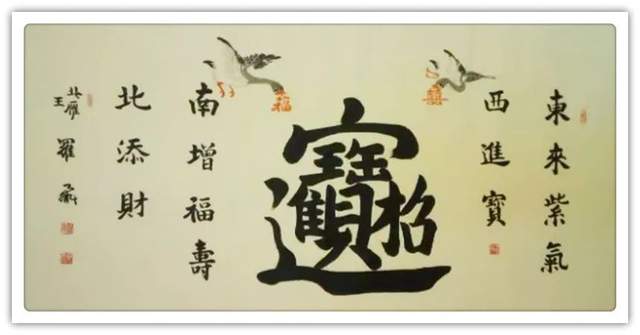 東來紫氣
西進寶
禧
招財進寶
福
南增福壽
北添財
北雁
王
羅